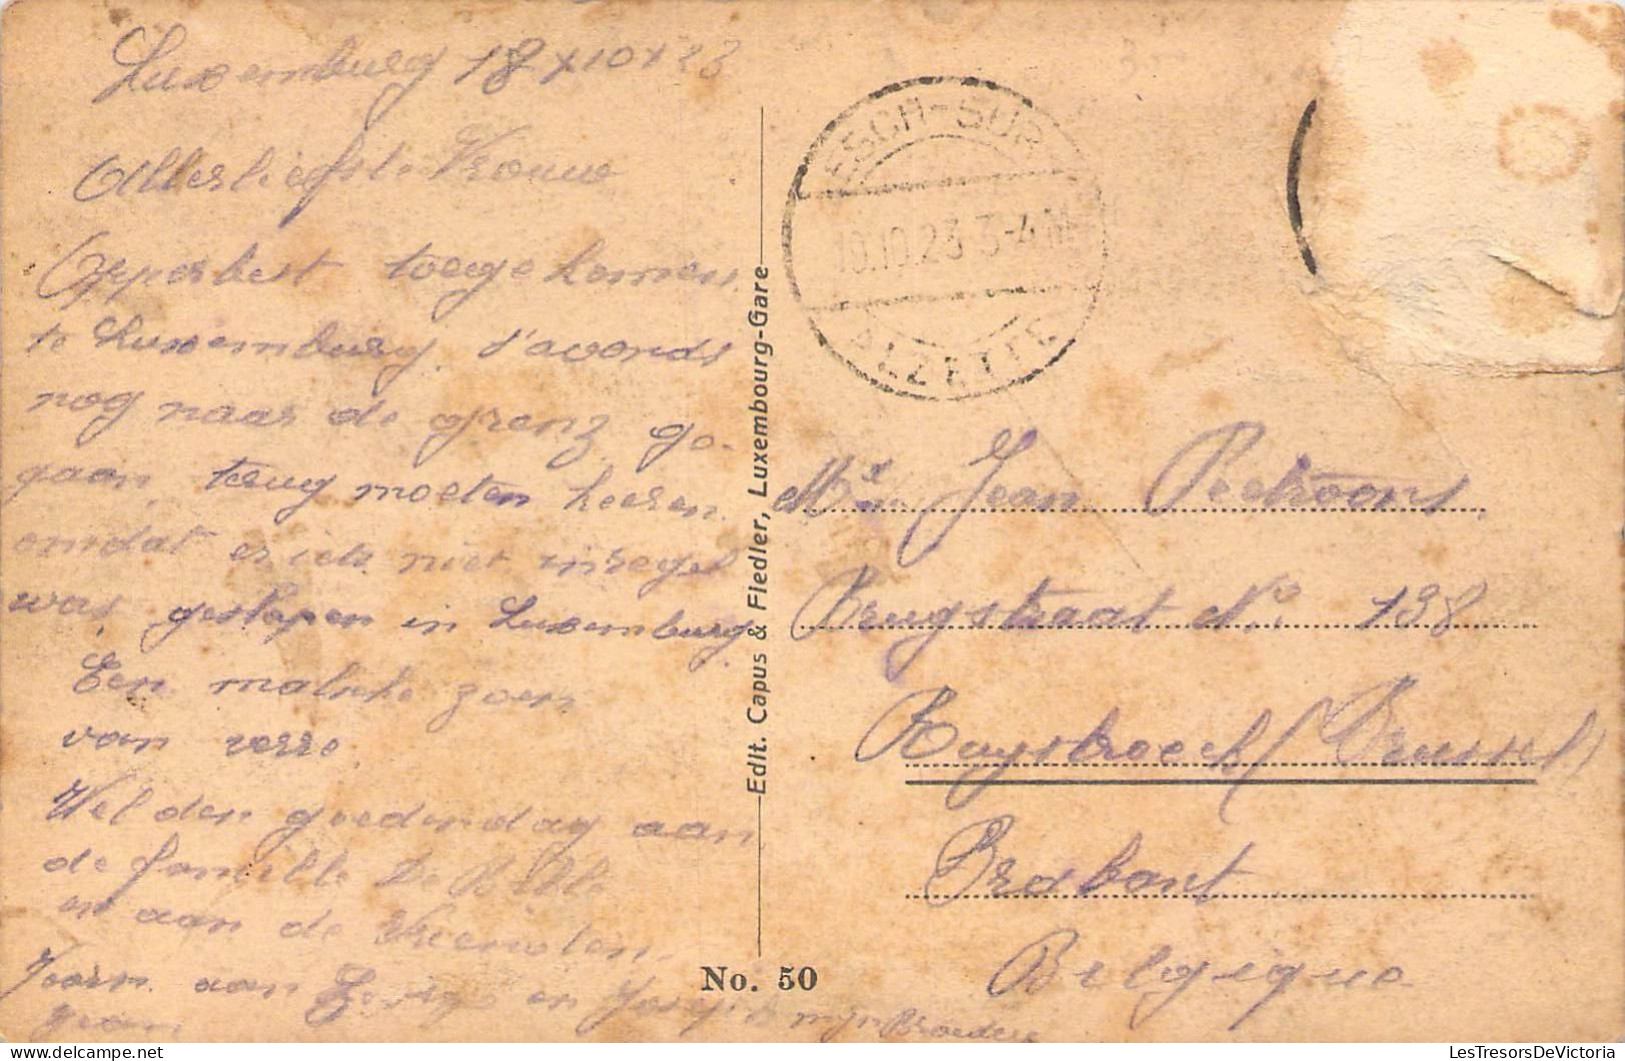 Luxemburg 18 x 10 x 23
Allerliefste Vrouw
Opperbest toegekomen
te Luxemburg, s'avonds
nog naar de grenz ge-
gaan, terug moeten keeren
omdat er iets niet inregel
was, geslapen in Luxemburg
Een malsche zoen
van verre
Vel den goedendag aan
de familli De
en aan de Vrienden,
Zoen aan en Joseph mijn Broeder
Jean
ESCH-SUR
10.10.23 3-4
ALZETTE
Edit. Capus & Fiedler, Luxembourg-Gare
No. 50
Jean Peetroons
Brugstraat No 138
Ruysbroeck (Brussel)
Brabant
Belgique
LesTresorsDeVictoria